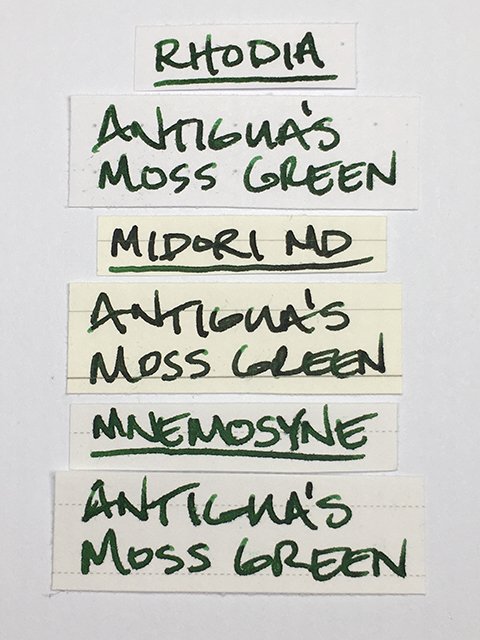 RHODIA
ANTIGUA'S
MOSS GREEN
MIDORI MD
ANTIGUA'S
MOSS GREEN
MNEMOSYNE
ANTIGUA'S
MOSS GREEN